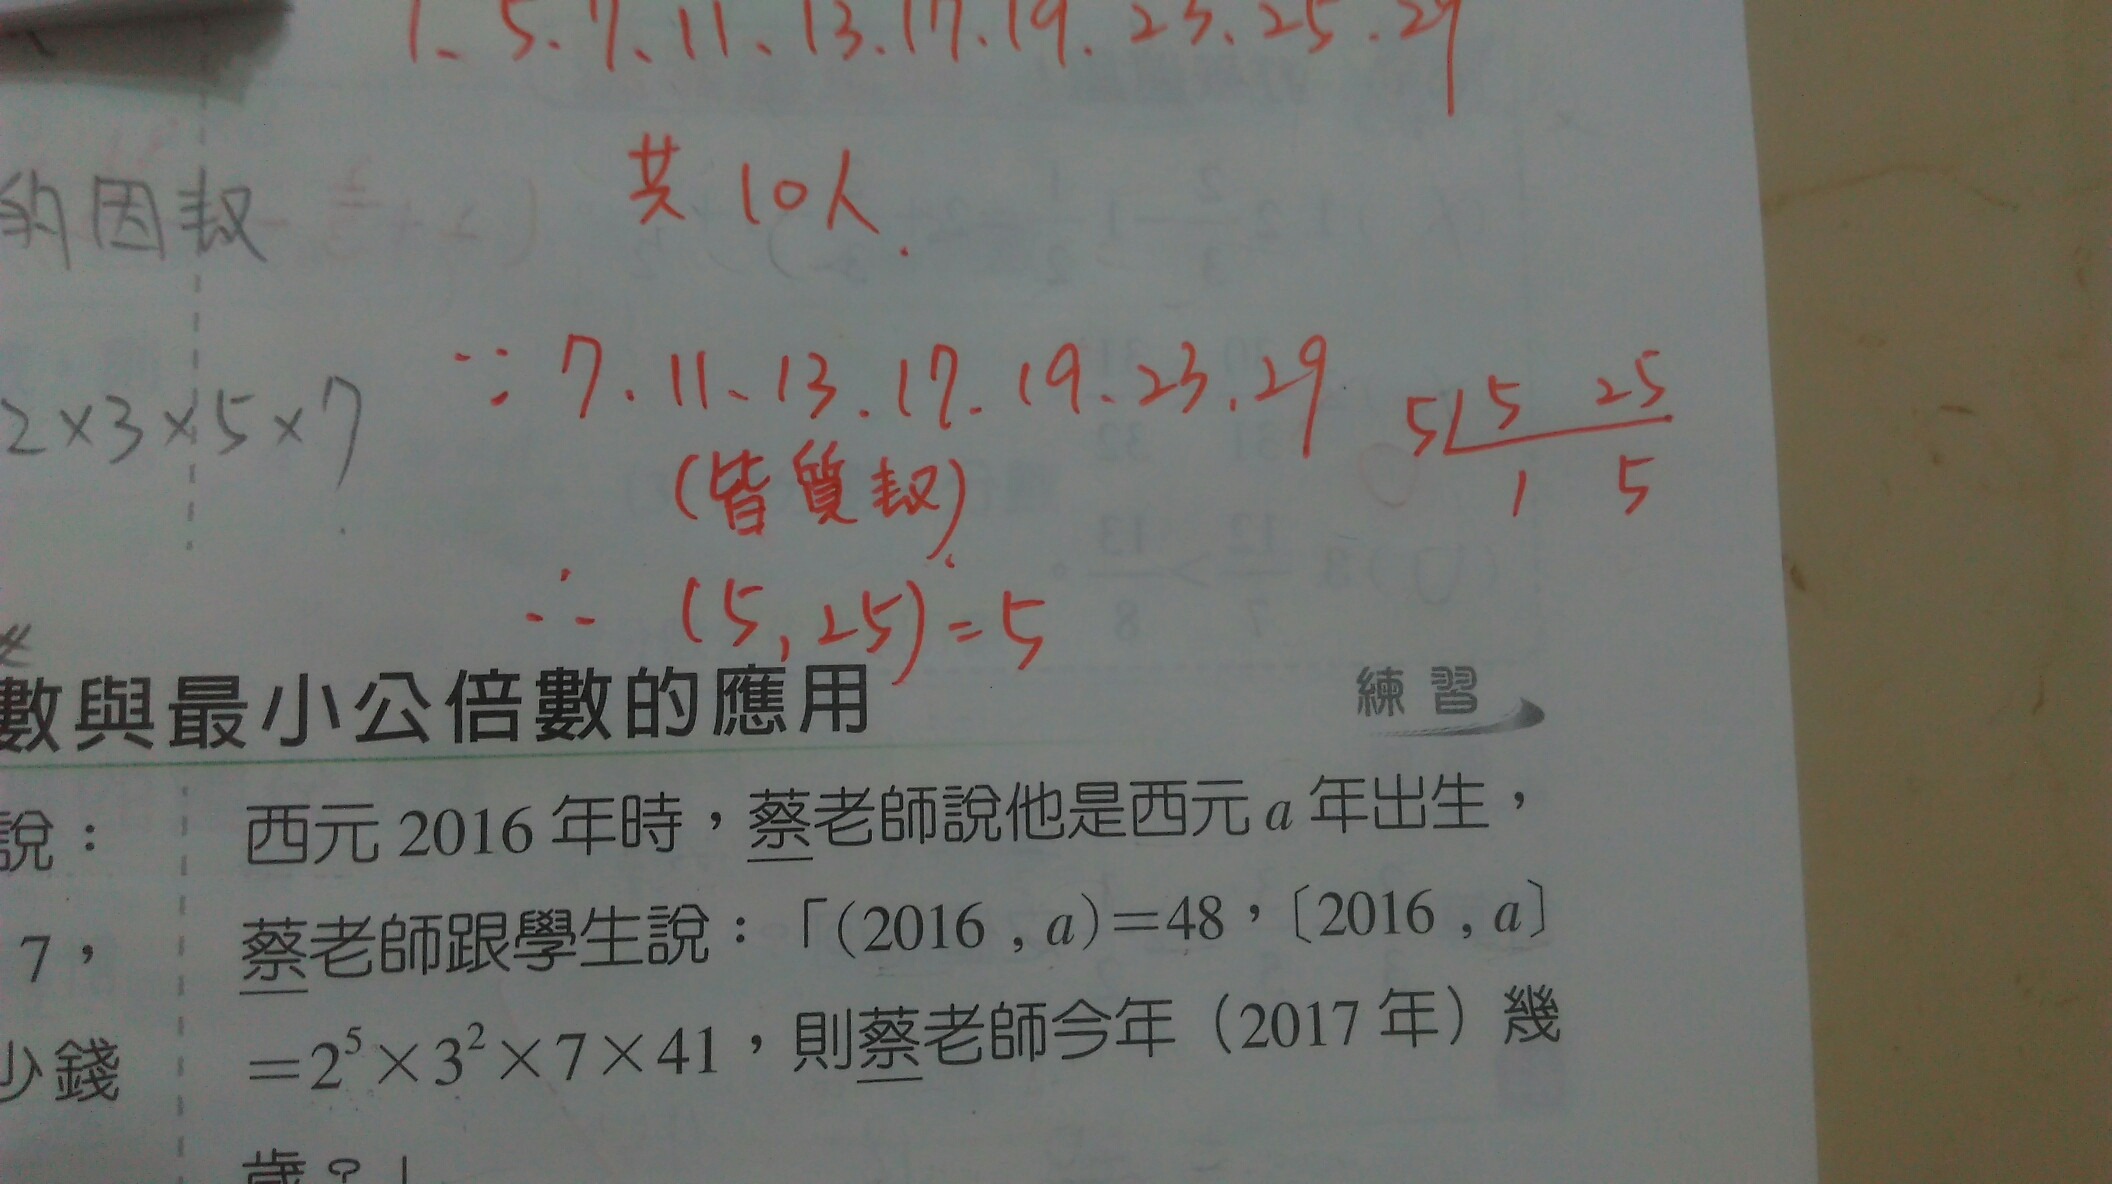 1、5、7、11、13、17、19、23、25、29
共10人.
的因數
2×3×5×7
∵ 7、11、13、17、19、23、29
5 5 25
(皆質數)
1 5
∴ (5,25)=5
數與最小公倍數的應用
練習
說：
西元 2016 年時，蔡老師說他是西元 a 年出生，
7，
蔡老師跟學生說：「(2016 , a)=48，〔2016 , a〕
少錢
=2⁵×3²×7×41，則蔡老師今年（2017 年）幾
歲？」